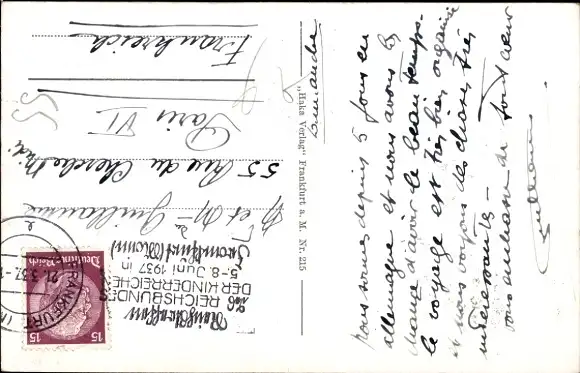 Dimanche
nous sommes depuis 5 jours en
allemagne et nous avons la
chance d'avoir le beau temps -
le voyage est très bien organisé
et nous voyons des choses très
intéressantes -
vous embrasse de tout cœur
Guillaume
"Haka Verlag" Frankfurt a. M. Nr. 215
REICHSBUNDES
DER KINDERREICHEN
5.-8. Juni 1937 in
Frankfurt (Main)
FRANKFURT
Deutsches Reich
15 15
M et Me Guillaume
55 Rue du Cherche Midi
Paris VI
Frankreich
55